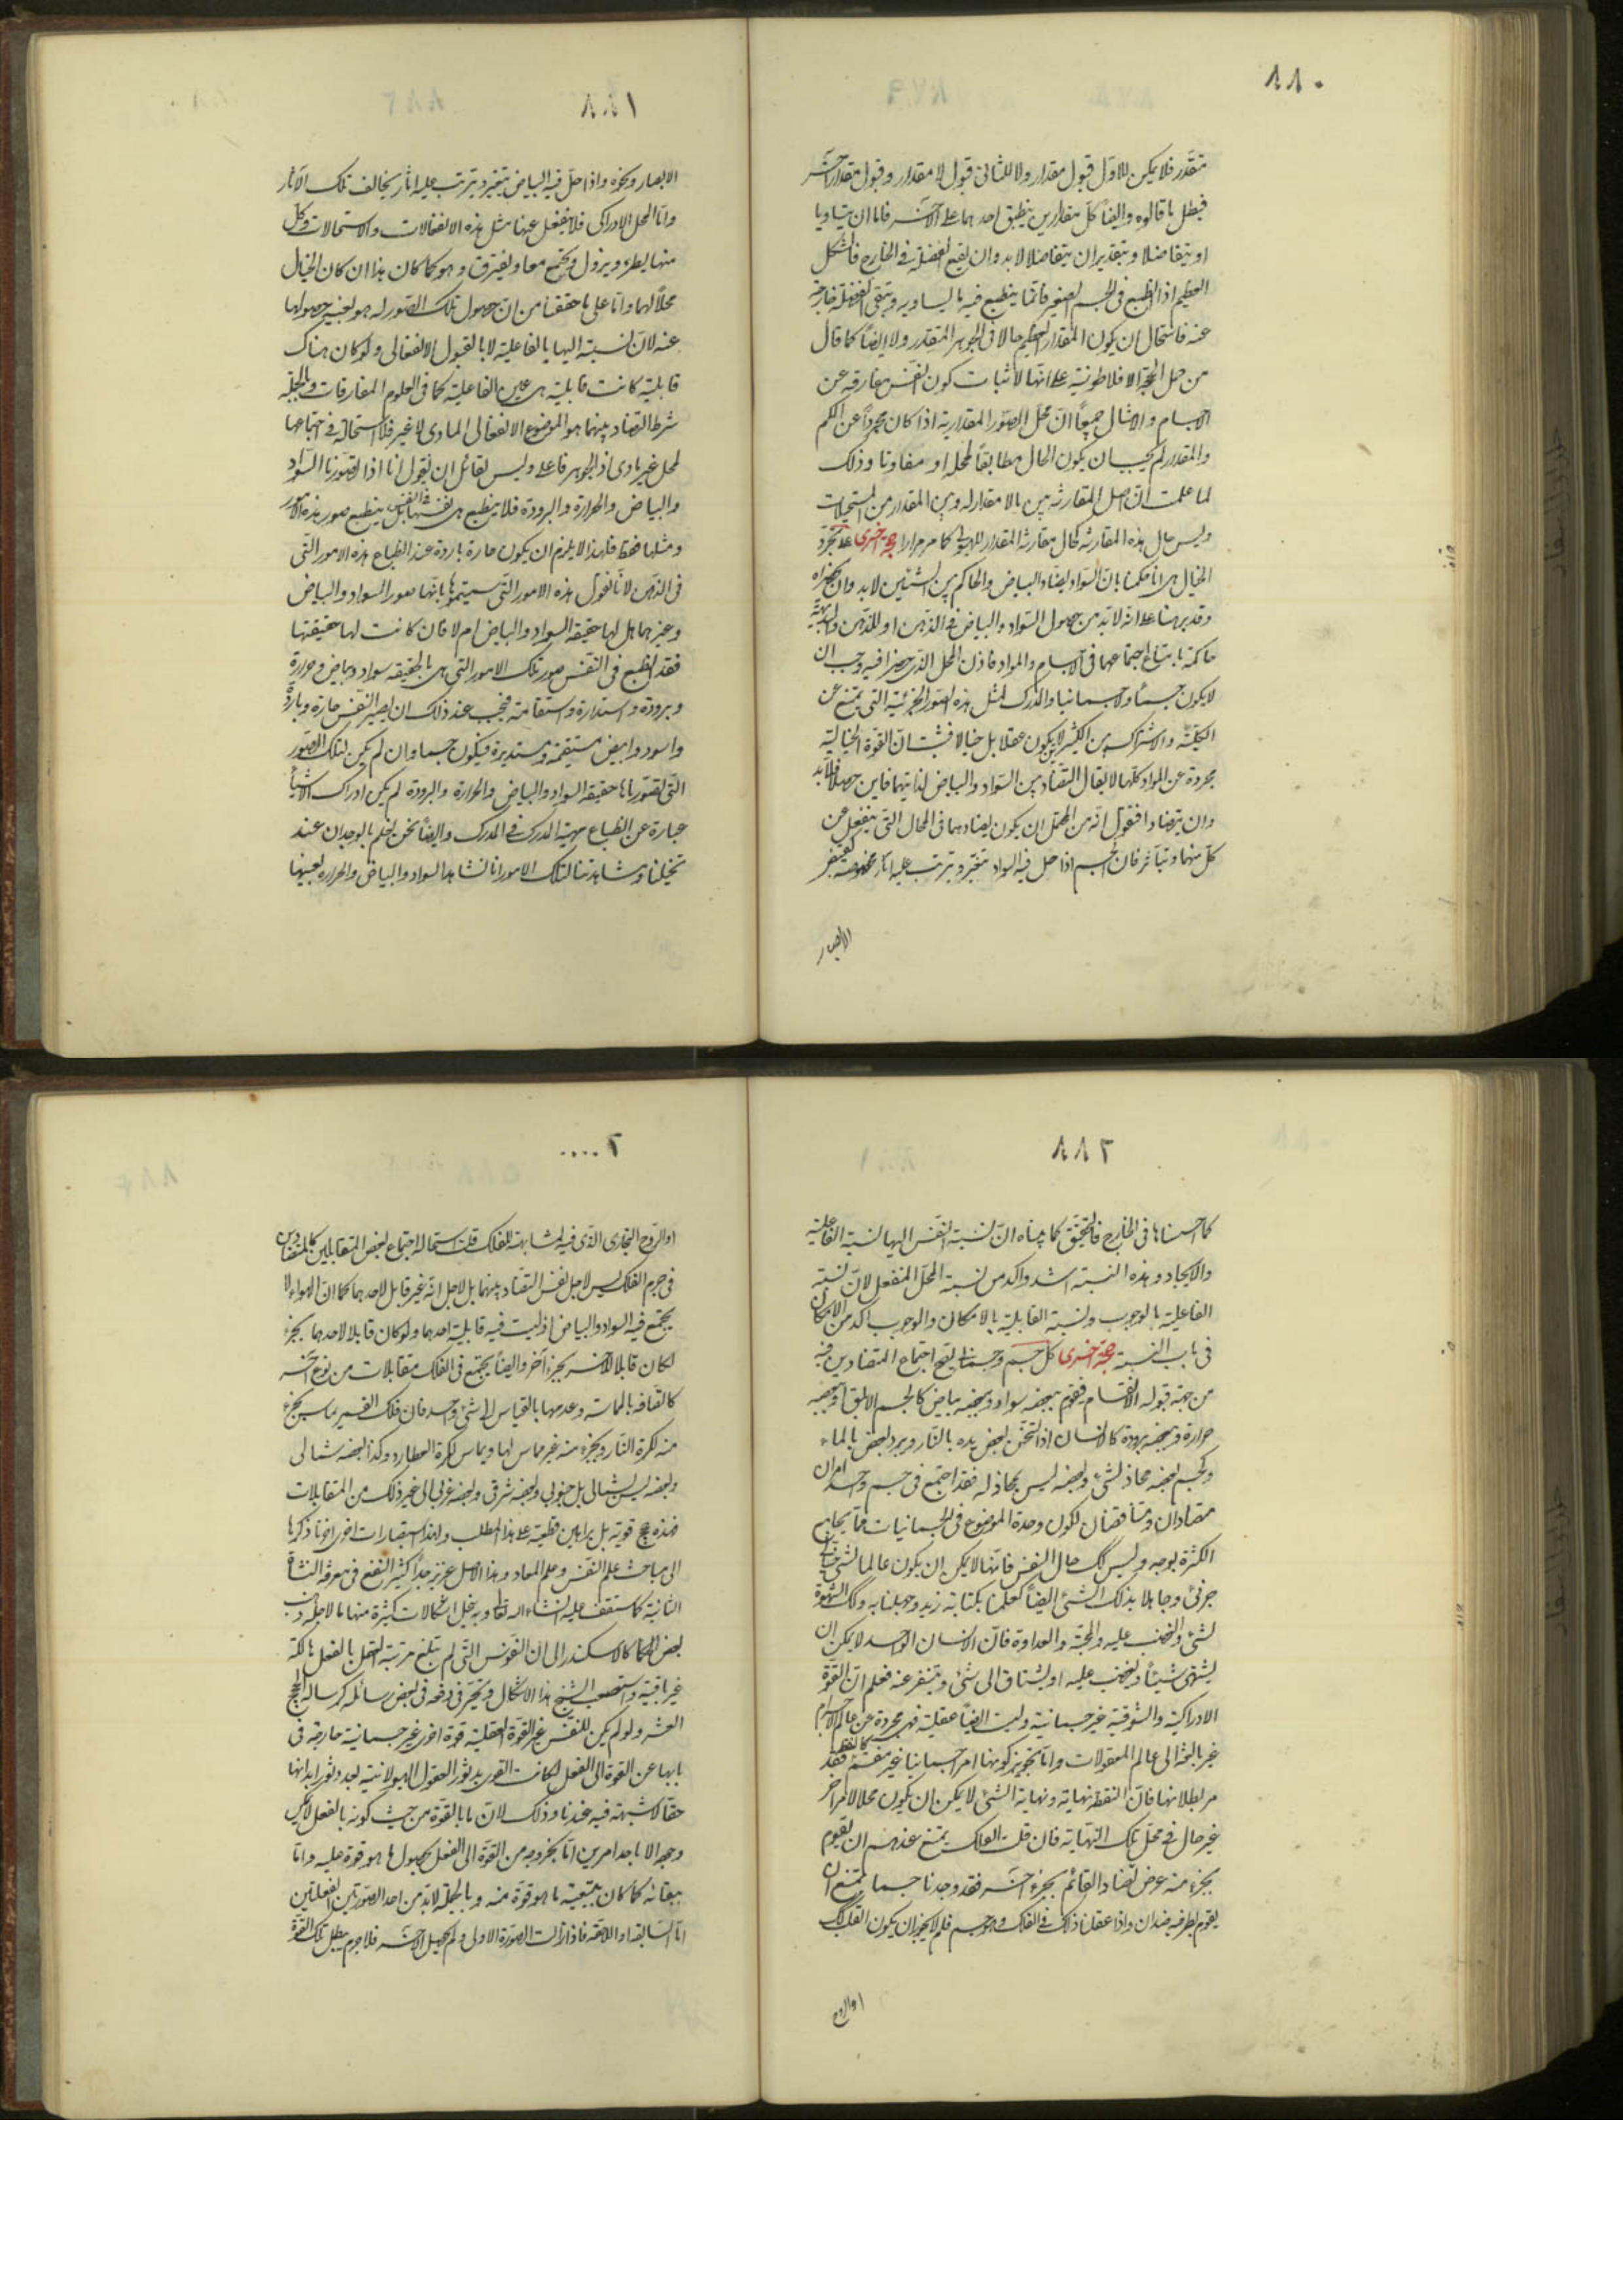 ٨٨٠
متقدر فلا يمكن للاول قبول مقدار ولا للثانى قبول لا مقدار وقبول مقدار آخر
فبطل ما قالوه وايضا كل مقدارين ينطبق احدهما على الآخر فاما ان يتساويا
او يتفاضلا وبتقدير ان يتفاضلا لابد وان يقع الفضلة فى الخارج فالشكل
العظيم اذا انطبع فى الجسم الصغير فانما ينطبع فيه ما يساويه وتبقى الفضلة خارجة
عنه فاستحال ان يكون المقدار العظيم حالا فى الجوهر المتقدر ولا ايضا كما قال
من حمل الحجة الافلاطونية على انها لاثبات كون النفس مفارقة عن
الاجسام والامثال جميعا ان محل الصور المقدارية اذا كان مجردا عن الكم
والمقدار لم يجب ان يكون الحال مطابقا لمحله او مفاوتا وذلك
لما علمت ان اصل المقارنة بين مالا مقدار له وبين المقدار من المستحيلات
وليس حال هذه المقارنة كحال مقارنة المقدار للهيولى كما مر مرارا حجة اخرى على تجرد
الخيال هى انا حكمنا بان السواد يضاد البياض والحاكم بين الشيئين لابد وان يحضراه
وقد برهنا على انه لابد من حصول السواد والبياض فى الذهن او للذهن والبديهة
حاكمة بامتناع اجتماعهما فى الاجسام والمواد فاذن المحل الذى حضرا فيه وجب ان
لا يكون جسما ولا جسمانيا والمدرك لمثل هذه الصور الجزئية التى يمتنع عن
الكلية والاشتراك بين الكثيرين لا يكون عقلا بل خيالا فثبت ان القوة الخيالية
مجردة عن المواد كلها لا يقال التضاد بين السواد والبياض لذاتيهما فاين حصلا فلابد
وان يتضادا فنقول انه من المحتمل ان يكون تضادهما فى المحال التى ينفعل عن
كل منهما ويتأثر فان الجسم اذا حل فيه السواد يتغير ويترتب عليه اثار مخصوصة كقبض
الابصار
٨٨١
الابصار ونحوه واذا حل فيه البياض يتغير ويترتب عليه اثار يخالف تلك الآثار
واما المحل الادراكى فلا ينفعل عنها مثل هذه الانفعالات والاستحالات وكل
منها يطرء ويزول ويجتمع معا ويفترق وهو كما كان هذا ان كان الخيال
محلا لهما واما على ما حققنا من ان حصول تلك الصور له هو بعينه حصولها
عنه لان نسبته اليها بالفاعلية لا بالقبول الانفعالى ولو كان هناك
قابلية كانت قابلية هى عين الفاعلية كما فى العلوم المفارقات وبالجملة
شرط التضاد بينهما هو الموضوع الانفعالى المادى لا غير فلا استحالة فى اجتماعهما
لمحل غير مادى اذ الجوهر فاعلى وليس لقائل ان يقول انا اذا تصورنا السواد
والبياض والحرارة والبرودة فلا ينطبع هى نفسها فى النفس بل ينطبع صور هذه الامور
ومثلها فقط فلهذا لا يلزم ان يكون حارة باردة عند انطباع هذه الامور التى
فى الذهن لانا نقول هذه الامور التى سميتموها بانها صور السواد والبياض
وغيرهما هل لها حقيقة السواد والبياض ام لا فان كانت لها حقيقتها
فقد انطبع فى النفس صور تلك الامور التى هى بالحقيقة سواد وبياض وحرارة
وبرودة واستدارة واستقامة فيجب عند ذلك ان يصير النفس حارة وباردة
واسود وابيض مستقيمة ومستديرة فيكون جسما وان لم يكن لتلك الصور
التى تصورناها حقيقة السواد والبياض والحرارة والبرودة لم يكن ادراك الاشياء
عبارة عن انطباع مهية المدرك فى المدرك وايضا نحن نعلم بالوجدان عند
تخيلنا ومشاهدتنا لتلك الامور انا نشاهد السواد والبياض والحرارة بعينها
٨٨٢
كما احسناها فى الخارج فالتحقيق كما بيناه ان نسبة النفس اليها نسبة الفاعلية
والايجاد وهذه النسبة اشد واكد من نسبة المحل المنفعل لان نسبة
الفاعلية بالوجوب ونسبة القابلية بالامكان والوجوب اكد من الامكان
فى باب النسبة حجة اخرى كل جسم وجسمانى يصح اجتماع المتضادين فيه
من جهة قبوله الانقسام فيقوم ببعضه سواد وببعضه بياض كالجسم الابلق وببعضه
حرارة وببعضه برودة كالانسان اذا تسخن بعض يده بالنار وبرد بعض بالماء
وكجسم بعضه محاذ لشئ وبعضه ليس بمحاذ له فقد اجتمع فى جسم واحد امران
متضادان ومتناقضان لكون وحدة الموضوع فى الجسمانيات مما يجامع
الكثرة بوجه وليس كك حال النفس فانها لا يمكن ان يكون عالما لشئ خيالى
جزئى وجاهلا بذلك الشئ ايضا كعلمنا بكتابة زيد وجهلنا به وكك الشهوة
لشئ والغضب عليه والمحبة والعداوة فان الانسان الواحد لا يمكن ان
يشتهى شيئا ويغضب عليه او يشتاق الى شئ ويتنفر عنه فعلم ان القوة
الادراكية والشوقية غير جسمانية وليست ايضا عقلية فهى مجردة عن عالم الاجسام
غير بالغة الى عالم المعقولات واما تجويز كونها امرا جسمانيا غير منقسم كالنقطة فقد
مر بطلانها فان النقطة نهاية ونهاية الشئ لا يمكن ان يكون محلا لامر آخر
غير حال فى محل تلك النهاية فان قلت الفلك يمتنع عندهم ان يقوم
بجزء منه عرض يضاد القائم بجزء آخر فقد وجدنا جسما يمتنع ان
يقوم بطرفيه ضدان واذا عقلنا ذلك فى الفلك وهو جسم فلم لا يجوز ان يكون القلب كك
او الروح
٢٠٠٠٠
او الروح البخارى الذى فيه لمشابهته للفلك قلت استحالة اجتماع بعض المتقابلين كالمتضادين
فى جرم الفلك ليس لاجل نفس التضاد بينهما بل لاجل انه غير قابل لاحدهما كما ان الهواء لا
يجتمع فيه السواد والبياض اذ ليست فيه قابلية احدهما ولو كان قابلا لاحدهما بجزء
لكان قابلا للآخر بجزء آخر وايضا يجتمع فى الفلك متقابلات من نوع آخر
كاتصافه بالمماسة وعدمها بالقياس الى شئ واحد فان فلك القمر يماس بجزء
منه لكرة النار وبجزء منه غير مماس لها ويماس لكرة العطارد وكذا بعضه شمالى
وبعضه ليس بشمالى بل جنوبى وبعضه شرقى وبعضه غربى الى غير ذلك من المتقابلات
فهذه حجج قوية بل براهين قطعية على هذا المطلب ولهذا استبصارات اخرى اخرنا ذكرها
الى مباحث علم النفس وعلم المعاد وهذا الاصل عزيز جدا كثير النفع فى معرفة النشأة
الثانية كما ستقف عليه انشاء الله تعالى وبه ينحل اشكالات كثيرة منها ما لاجله ذهب
بعض الحكماء كالاسكندر الى ان النفوس التى لم تبلغ مرتبة العقل بالفعل هالكة
غير باقية واستصعب الشيخ هذا الاشكال وتحير فى دفعه فى بعض رسائله كرسالة الحجج
العشر ولو لم يكن للنفس غير القوة العقلية قوة اخرى غير جسمانية خارجة فى
بابها عن القوة الى الفعل لكانت القول بدثور العقول الهيولانية بعد دثور ابدانها
حقا لا شبهة فيه عندنا وذلك لان ما بالقوة من حيث كونه بالفعل لا يمكن
وجوده الا باحد امرين اما بخروجه من القوة الى الفعل بحصول ما هو قوة عليه واما
ببقائه كما كان بتبعية ما هو قوة منه وبالجملة لابد من احد الصورتين الفعليتين
اما السابقة او اللاحقة فاذا زالت الصورة الاولى ولم يحصل الآخر فلا جرم يبطل تلك القوة